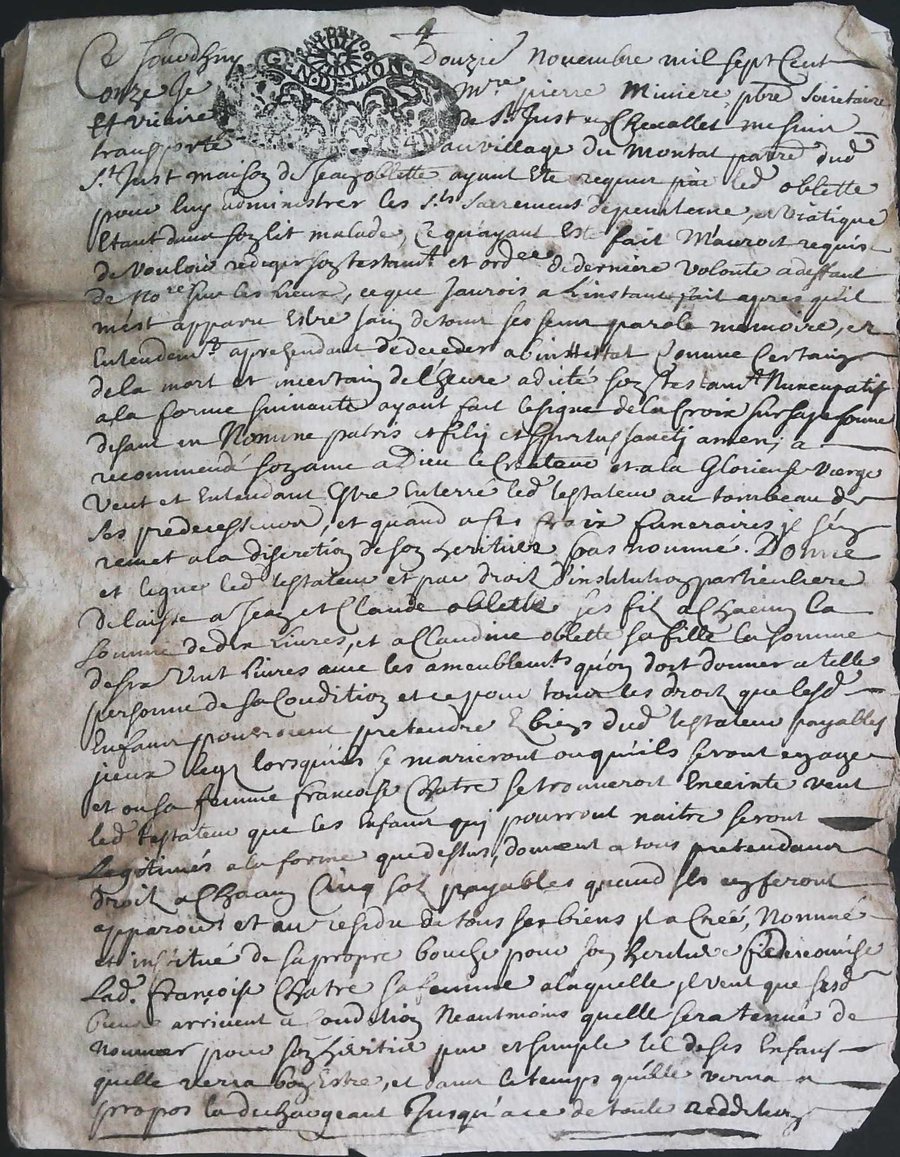 4
GEN.DE.LION
Ce Jourdhuy Douzie novembre mil sept Cent
onze Je mre pierre miniere ptre soiretaire
Et vicaire de St Just en Chevallet me suis
transporté au village du montat parre dud
St Just maison de Jean oblette ayant Esté requis par led oblette
pour luy administrer les Sts Sacrements de penitence, et viatique
Etant dans son lit malade, Ce qu'ayant Esté fait M'auroit requis
de vouloir rediger son testamt et ordee de derniere volonté a deffaut
de Nore sur les Lieux, ce que Jaurois a L'instant fait apres qu'il
m'est apparu Estre sain de tous ses sens parole memoire, et
Entendemt aprehendant de deceder ab intestat comme Certain
de la mort et incertain de l'heure a dicté son testamt Nuncupatif
a la forme suivante ayant fait le signe de la Croix sur sa personne
disant in Nomine patris et filij et spiritus sancti amen, a
recommendé son ame a Dieu le Createur et a la Glorieuse vierge
veut et Entendant Estre Enterré led testateur au tombeau de
ses predecesseurs, et quand a ses fraix funeraires il s'en
remet a la discretion de son heritier bas nommé. Donne
et legue led testateur et par droit d'institution particuliere
delaisse a Jean et Claude oblette ses fils a Chacun la
somme de dix Livres, et a Claudine oblette sa fille la somme
de six vint Livres avec les ameublemts qu'on doit donner a telle
personne de sa Condition et ce pour tous les droits que lesd
Enfants pourroient pretendre Es biens dud testateur payables
iceux legs lorsqu'ils se marieront ou qu'ils seront en age
et ou sa femme françoise Chatre se trouveroit Enceinte veut
led testateur que les Enfants qui pourront naitre seront
Legitimés a la forme que dessus, donnent a tous pretendants
droit a Chacun Cinq sols payables quand ils en feront
apparoir et au residu de tous ses biens il a Creé, Nommé
et institué de sa propre bouche pour son heritiere fideicomise
Lad. françoise Chatre sa femme a laquelle il veut que sesd
biens arrivent a Condition Neantmoins quelle sera tenue de
nommer pour son heritier pur et simple tel de ses Enfans
quelle verra bon Estre, et dans le temps qu'elle verra a
propos la dechargeant Jusqu'a ce de toute reddition